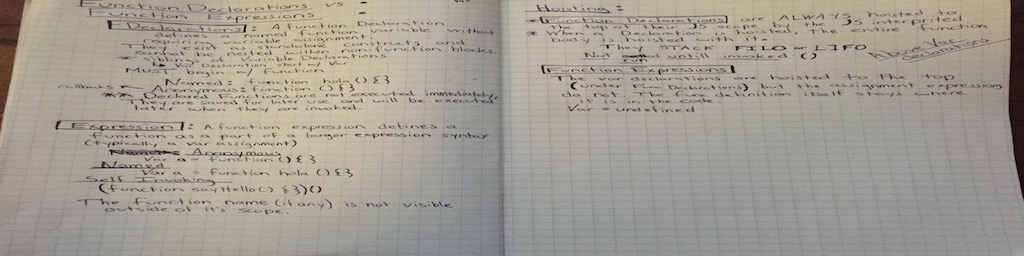 Function Declarations vs :
Function Expressions
Declarations : A Function Declaration
defines a named function variable without
requiring variable assignment.
They exist as standalone constructs and
cannot be nested within nonfunction blocks.
* siblings of Variable Declarations
Var Declaration start w/ Var
MUST begin w/ function
Named: function hola () { }
callbacks - Anonymous: function () { }
** Declared Functions are not executed immediately,
They are saved for later use and will be executed
later when they are invoked.
Expression : A function expression defines a
function as a part of a larger expression syntax
(typically a var assignment)
Anonymous
Var a = function () { }
Named
Var a = function hola () { }
Self Invoking
(function sayHello() { })()
The function name (if any) is not visible
outside of it's scope.
Hoisting :
* Function Declarations are ALWAYS hoisted to
the top of their JS scope by the JS interprited
* When a Declaration is hoisted, the entire function
body is hoisted with it.
They STACK FILO or LIFO
Not run untill invoked ()
Above Var
Declarations
Function Expressions
The var declarations are hoisted to the top
(under Func Declarations) but the assignment expressions
do not. The func definition itself stays where
it is in the code.
Var = undefined